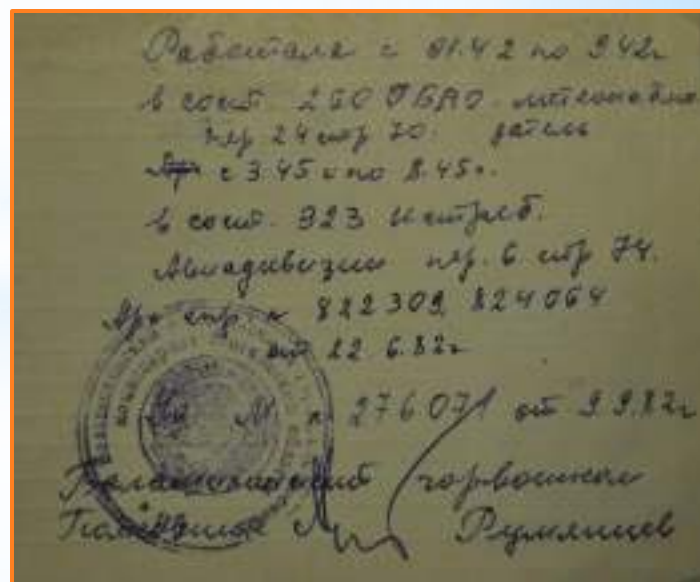 Работала с 01.42 по 9.42г
в сост 260 ОБАО. метеонаблю
пер 24 стр 70. датель
с 3.45 г по 8.45г.
в сост. 323 Истреб.
Авиадивизии пер. 6 стр 74.
Арх спр. № 822309, 824064
от 22 6.82г
№ 276071 от 9 9.82г
Балашихинский горвоенком
Румянцев